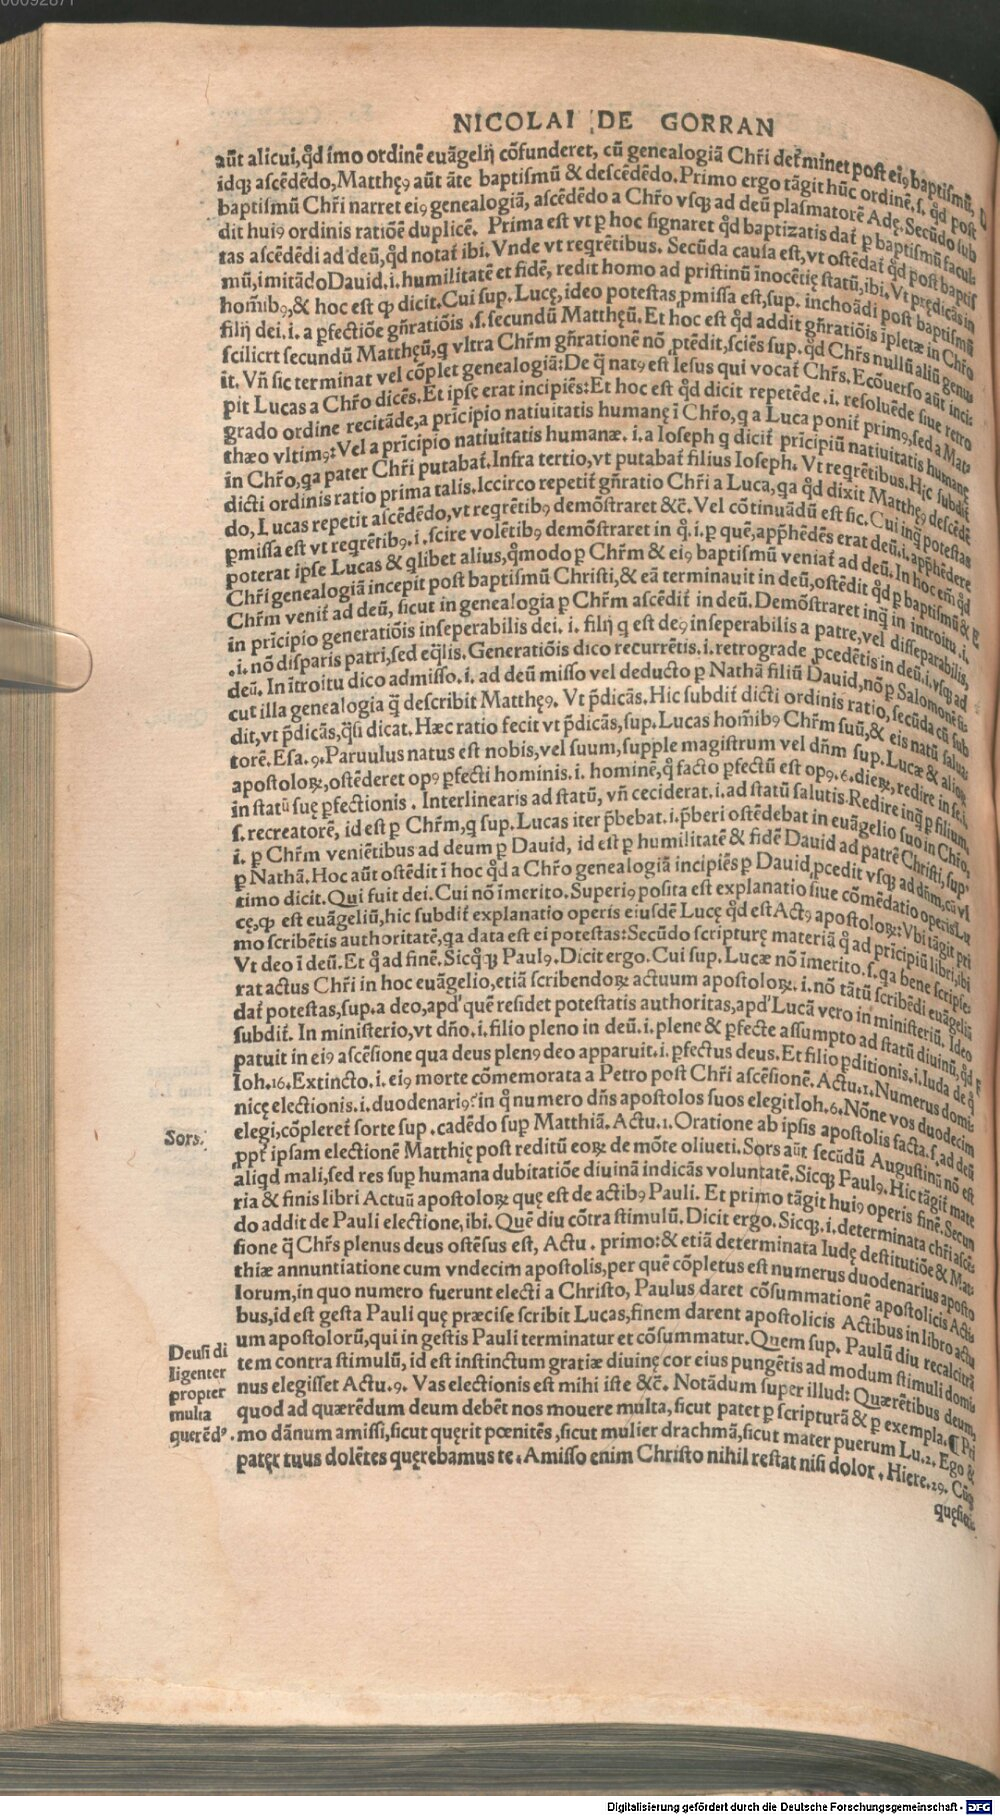 NICOLAI DE GORRAN
aūt alicui, qđ imo ordinē euāgelij cōfunderet, cū genealogiā Chr̄i det̄minet post eiꝰ baptismū,
idqꝫ ascēdēdo, Matthęꝰ aūt āte baptismū & descēdēdo. Primo ergo tāgit hūc ordinē, s. qđ post
baptismū Chr̄i narret eiꝰ genealogiā, ascēdēdo a Chr̄o vsqꝫ ad deū plasmatorē Adę. Secūdo sub
dit huiꝰ ordinis ratiōē duplicē. Prima est vt ꝑ hoc signaret qđ baptizatis dat̄ ꝑ baptismū facul
tas ascēdēdi ad deū, qđ notat̄ ibi. Vnde vt reqrētibus. Secūda causa est, vt ostēdat̄ qđ post baptis
mū, imitādo Dauid. i. humilitatē et fidē, redit homo ad pristinū īnocētię statū, ibi. Vt prędicās in
hom̄ibꝰ, & hoc est ꝙ dicit. Cui sup. Lucę, ideo potestas ꝑmissa est, sup. inchoādi post baptismū
filij dei. i. a ꝑfectiōe gn̄ratiōis. s. secundū Matthęū. Et hoc est qđ addit gn̄ratiōis īpletæ in Chr̄o
scilicrt secundū Matthęū, q vltra Chr̄m gn̄rationē nō ꝓtēdit, sciēs sup. qđ Chr̄s nullū aliū genus
it. Vn̄ sic terminat vel cōplet genealogiā: De q̄ natꝰ est Iesus qui vocat̄ Chr̄s. Ecōuerso aūt incis
pit Lucas a Chr̄o dicēs. Et ipse erat incipiēs: Et hoc est qđ dicit repetēde. i. resoluēde siue retro
grado ordine recitāde, a prīcipio natiuitatis humanę ī Chr̄o, q a Luca ponit̄ primꝰ, sed a Mat
thæo vltimꝰ: Vel a prīcipio natiuitatis humanæ. i. a Ioseph q dicit̄ prīcipiū natiuitatis humanę
in Chr̄o, qa pater Chr̄i putabat̄. Infra tertio, vt putabat̄ filius Ioseph. Vt reqrētibus. Hic subdit̄
dicti ordinis ratio prima talis. Iccirco repetit̄ gn̄ratio Chr̄i a Luca, qa qđ dixit Matthęꝰ descēdē
do, Lucas repetit ascēdēdo, vt reqrētibꝰ demōstraret &c̄. Vel cōtinuādū est sic. Cui inq̄ potestas
ꝑmissa est vt reqrētibꝰ. i. scire volētibꝰ demōstraret in q̄. i. ꝑ quē, app̄hēdēs erat deū. i. app̄hēdere
poterat ipse Lucas & qlibet alius, q̄modo ꝑ Chr̄m & eiꝰ baptismū veniat̄ ad deū. In hoc em̄ qđ
Chr̄i genealogiā incepit post baptismū Christi, & eā terminauit in deū, ostēdit qđ ꝑ baptismū &
Chr̄m venit̄ ad deū, sicut in genealogia ꝑ Chr̄m ascēdit̄ in deū. Demōstraret inq̄ in introitu. i.
in prīcipio generatiōis inseperabilis dei. i. filij q est deꝰ inseperabilis a patre, vel disseparabilis,
. i. nō disparis patri, sed eq̄lis. Generatiōis dico recurrētis. i. retrograde ꝓcedētis in deū. i. vsqꝫ ad
deū. In ītroitu dico admisso. i. ad deū misso vel deducto ꝑ Nathā filiū Dauid, nō ꝑ Salomonē si
cut illa genealogia q̄ describit Matthęꝰ. Vt p̄dicās. Hic subdit̄ dicti ordinis ratio, secūda cū sub
dit, vt p̄dicās, q̄si dicat. Hæc ratio fecit vt p̄dicās, sup. Lucas hom̄ibꝰ Chr̄m suū, & eis natū salua
torē. Esa. 9. Paruulus natus est nobis, vel suum, supple magistrum vel dn̄m sup. Lucæ & alioꝝ
apostoloꝝ, ostēderet opꝰ ꝑfecti hominis. i. hominē, q̄ facto ꝑfectū est opꝰ. 6. dieꝝ, redire in se. i.
in statū suę ꝑfectionis. Interlinearis ad statū, vn̄ ceciderat. i. ad statū salutis. Redire inq̄ ꝑ filium,
s. recreatorē, id est ꝑ Chr̄m, q sup. Lucas iter p̄bebat. i. p̄beri ostēdebat in euāgelio suo in Chr̄o,
i. ꝑ Chr̄m veniētibus ad deum ꝑ Dauid, id est ꝑ humilitatē & fidē Dauid ad patrē Christi, sup.
ꝑ Nathā. Hoc aūt ostēdit ī hoc qđ a Chr̄o genealogiā incipiēs ꝑ Dauid, ꝓcedit vsqꝫ ad dn̄m, cū vl
timo dicit. Qui fuit dei. Cui nō īmerito. Superiꝰ posita est explanatio siue cōmēdatio operis Lu
cę, ꝙ est euāgeliū, hic subdit̄ explanatio operis eiusdē Lucę qđ est Actꝰ apostoloꝝ: Vbi tāgit pri
mo scribētis authoritatē, qa data est ei potestas: Secūdo scripturę materiā q̄ ad prīcipiū libri, ibi
Vt deo ī deū. Et q̄ ad finē. Sicq̄qꝫ Paulꝰ. Dicit ergo. Cui sup. Lucæ nō īmerito. s. qa bene scripse
rat actus Chr̄i in hoc euāgelio, etiā scribendoꝝ actuum apostoloꝝ. i. nō tātū scribēdi euāgeliū
dat̄ potestas, sup. a deo, apd' quē residet potestatis authoritas, apd' Lucā vero in ministeriū. Ideo
subdit̄. In ministerio, vt dn̄o. i. filio pleno in deū. i. plene & ꝑfecte assumpto ad statū diuinū, qđ
patuit in eiꝰ ascēsione qua deus plenꝰ deo apparuit. i. ꝑfectus deus. Et filio ꝑditionis. i. Iuda de q̄
Ioh. 16. Extincto. i. eiꝰ morte cōmemorata a Petro post Chr̄i ascēsionē. Actu. 1. Numerus domi
nicę electionis. i. duodenariꝰ: in q̄ numero dn̄s apostolos suos elegit Ioh. 6. Nōne vos duodecim
elegi, cōpleret̄ sorte sup. cadēdo suꝑ Matthiā. Actu. 1. Oratione ab ipsis apostolis facta. s. ad deū
Sors.
ꝓpt̄ ipsam electionē Matthię post reditū eoꝝ de mōte oliueti. Sors aūt secūdū Augustinū nō est
aliqd mali, sed res suꝑ humana dubitatiōe diuinā indicās voluntatē. Sicqꝫ Paulꝰ. Hic tāgit̄ mate
ria & finis libri Actuū apostoloꝝ quę est de actibꝰ Pauli. Et primo tāgit huiꝰ operis finē. Secun
do addit de Pauli electione, ibi. Quē diu cōtra stimulū. Dicit ergo. Sicqꝫ. i. determinata chr̄i ascē
sione q̄ Chr̄s plenus deus ostēsus est, Actu. primo: & etiā determinata Iudę destitutiōe & Mat
thiæ annuntiatione cum vndecim apostolis, per quē cōpletus est numerus duodenarius aposto
lorum, in quo numero fuerunt electi a Christo, Paulus daret cōsummationē apostolicis Actis
bus, id est gesta Pauli quę præcise scribit Lucas, finem darent apostolicis Actibus in libro actu
um apostolorū, qui in gestis Pauli terminatur et cōsummatur. Quem sup. Paulū diu recalcitrā
Deusi di
ligenter
propter
multa
querēdꝰ.
tem contra stimulū, id est instinctum gratiæ diuinę cor eius pungētis ad modum stimuli domis
nus elegisset Actu. 9. Vas electionis est mihi iste &c̄. Notādum super illud: Quærētibus deum,
quod ad quærēdum deum debēt nos mouere multa, sicut patet ꝑ scripturā & ꝑ exempla. ¶ Pri
mo dānum amissi, sicut quęrit pœnitēs, sicut mulier drachmā, sicut mater puerum Lu. 2. Ego &
patęr tuus dolētes quęrebamus te. Amisso enim Christo nihil restat nisi dolor. Hiere. 29. Cūqꝫ
Digitalisierung gefördert durch die Deutsche Forschungsgemeinschaft - DFG